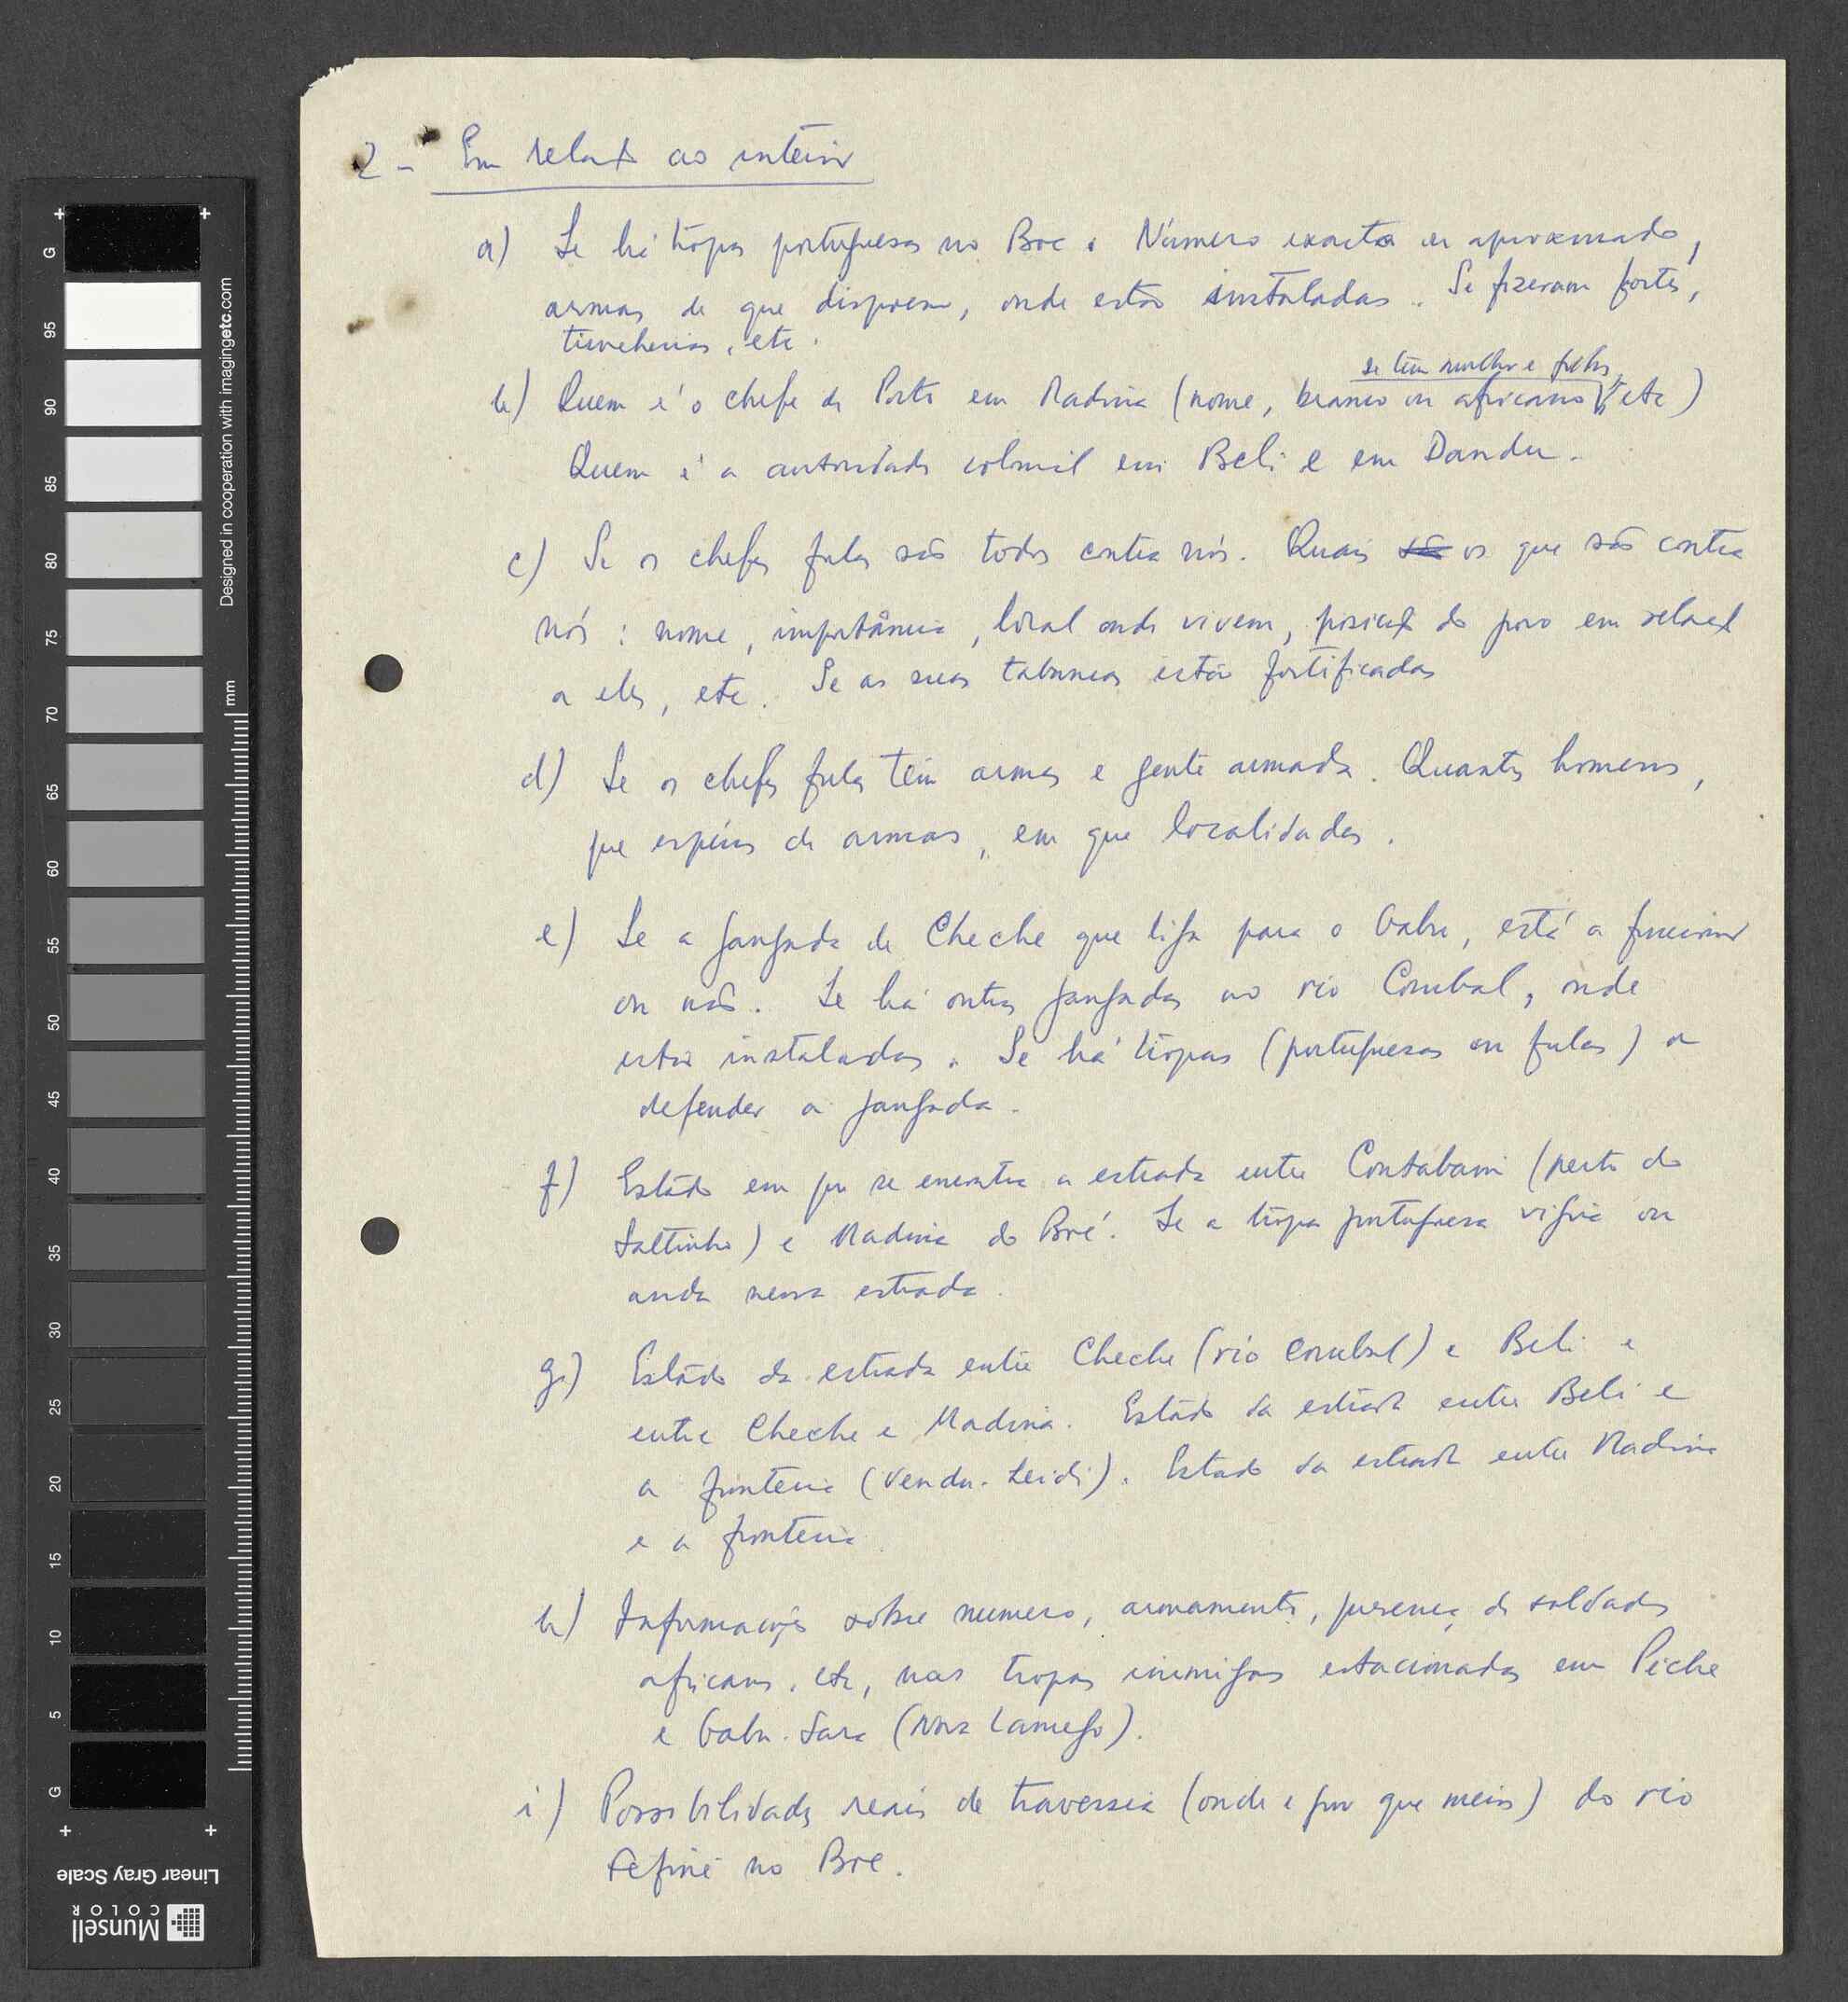 2 - Em relaç᷉ ao interior
a) Se há tropas portuguesas no Boe. Número exacto ou aproximado,
armas de que dispoem, onde estão instaladas. Se fizeram fortes,
trincheiras, etc.
se tem mulher e filhos,
b) Quem é o chefe de Posto em Madina (nome, branco ou africano, etc)
Quem é a autoridade colonial em Beli e em Dandu.
c) Se os chefes fulas são todos contra nós. Quais são os que são contra
nós: nome, importância, local onde vivem, posição do povo em relação
a eles, etc. Se as suas tabancas estão fortificadas
d) Se os chefes fulas têm armas e gente armada. Quantos homens,
que espécies de armas, em que localidades.
e) Se a jangada de Cheche que liga para o Gabu, está a funcionar
ou não. Se há outras jangadas no rio Corubal, onde
estão instaladas. Se há tropas (portuguesas ou fulas) a
defender a jangada.
f) Estado em que se encontra a estrada entre Contabani (perto do
Saltinho) e Madina do Boé. Se a tropa portuguesa vigia ou
anda nessa estrada.
g) Estado da estrada entre Cheche (rio Corubal) e Beli e
entre Cheche e Madina. Estado da estrada entre Beli e
a fronteira (Vendu-Leidi). Estado da estrada entre Madina
e a fronteira.
h) Informações sobre numero, armamento, presença de soldados
africanos, etc, nas tropas inimigas estacionadas em Piche
e Gabu-Sara (Nova Lamego).
i) Possibilidades reais de travessia (onde e por que meios) do rio
Fefiné no Boe.
Designed in cooperation with imagingetc.com
mm
G
95
90
85
80
75
70
65
60
55
50
45
40
35
30
25
20
15
10
5
G
Linear Gray Scale
Munsell
COLOR